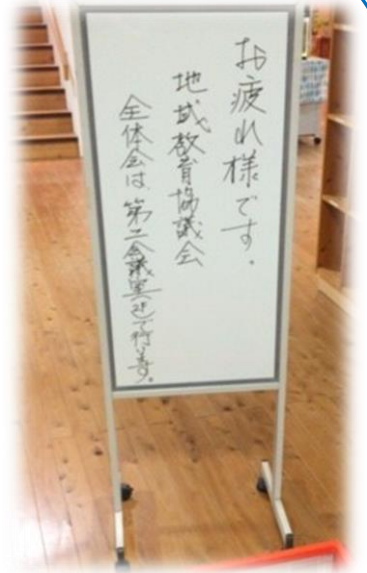 お疲れ様です。
地域教育協議会
全体会は、第二会議室(2F)で行います。